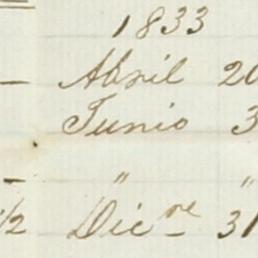 1833
— Abril 20
Junio 3
— " "
1/2 Dic.re 31